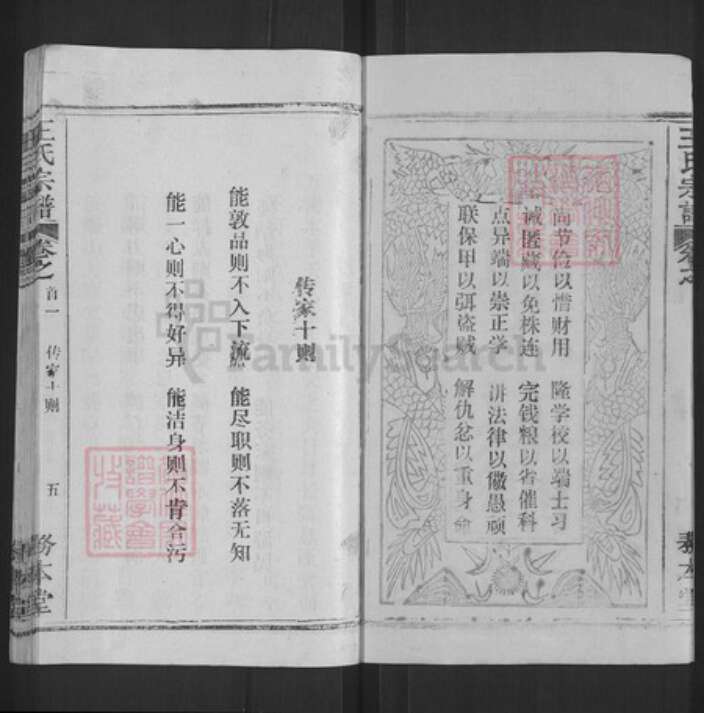 王氏宗谱
尚节俭以惜财用 隆学校以端士习
诫匿藏以免株连 完钱粮以省催科
点异端以崇正学 讲法律以儆愚顽
联保甲以弭盗贼 解仇忿以重身命
务本堂
传家十则
能敦品则不入下流 能尽职则不落无知
能一心则不得好异 能洁身则不肯合污
王氏宗谱
卷之
首一 传家十则 五
务本堂
FamilySearch